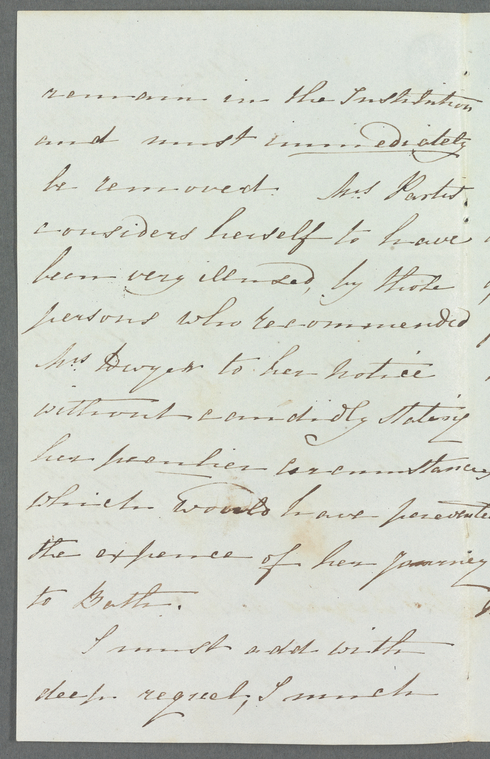 remain in the Institution
and must immediately
be removed. Mrs
considers herself to have
been very illused, by those
persons who recommended
Mrs Dwyer to her notice
without candidly stating
her peculier circumstances
which would have prevented
the expence of her Journey
to Bath.
I must add with
deep regret, I much